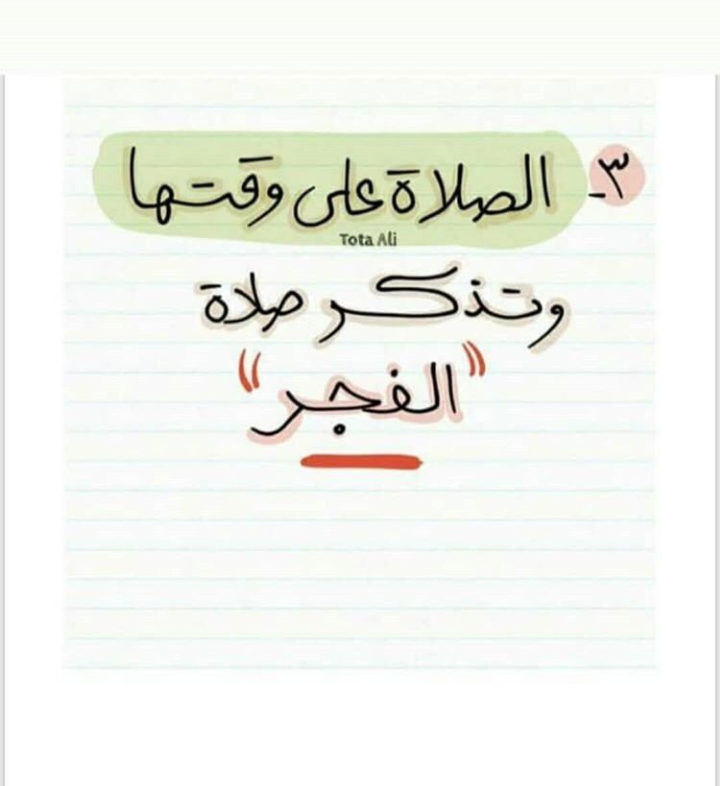 ٣- الصلاة على وقتها
Tota Ali
وتذكر صلاة
"الفجر"